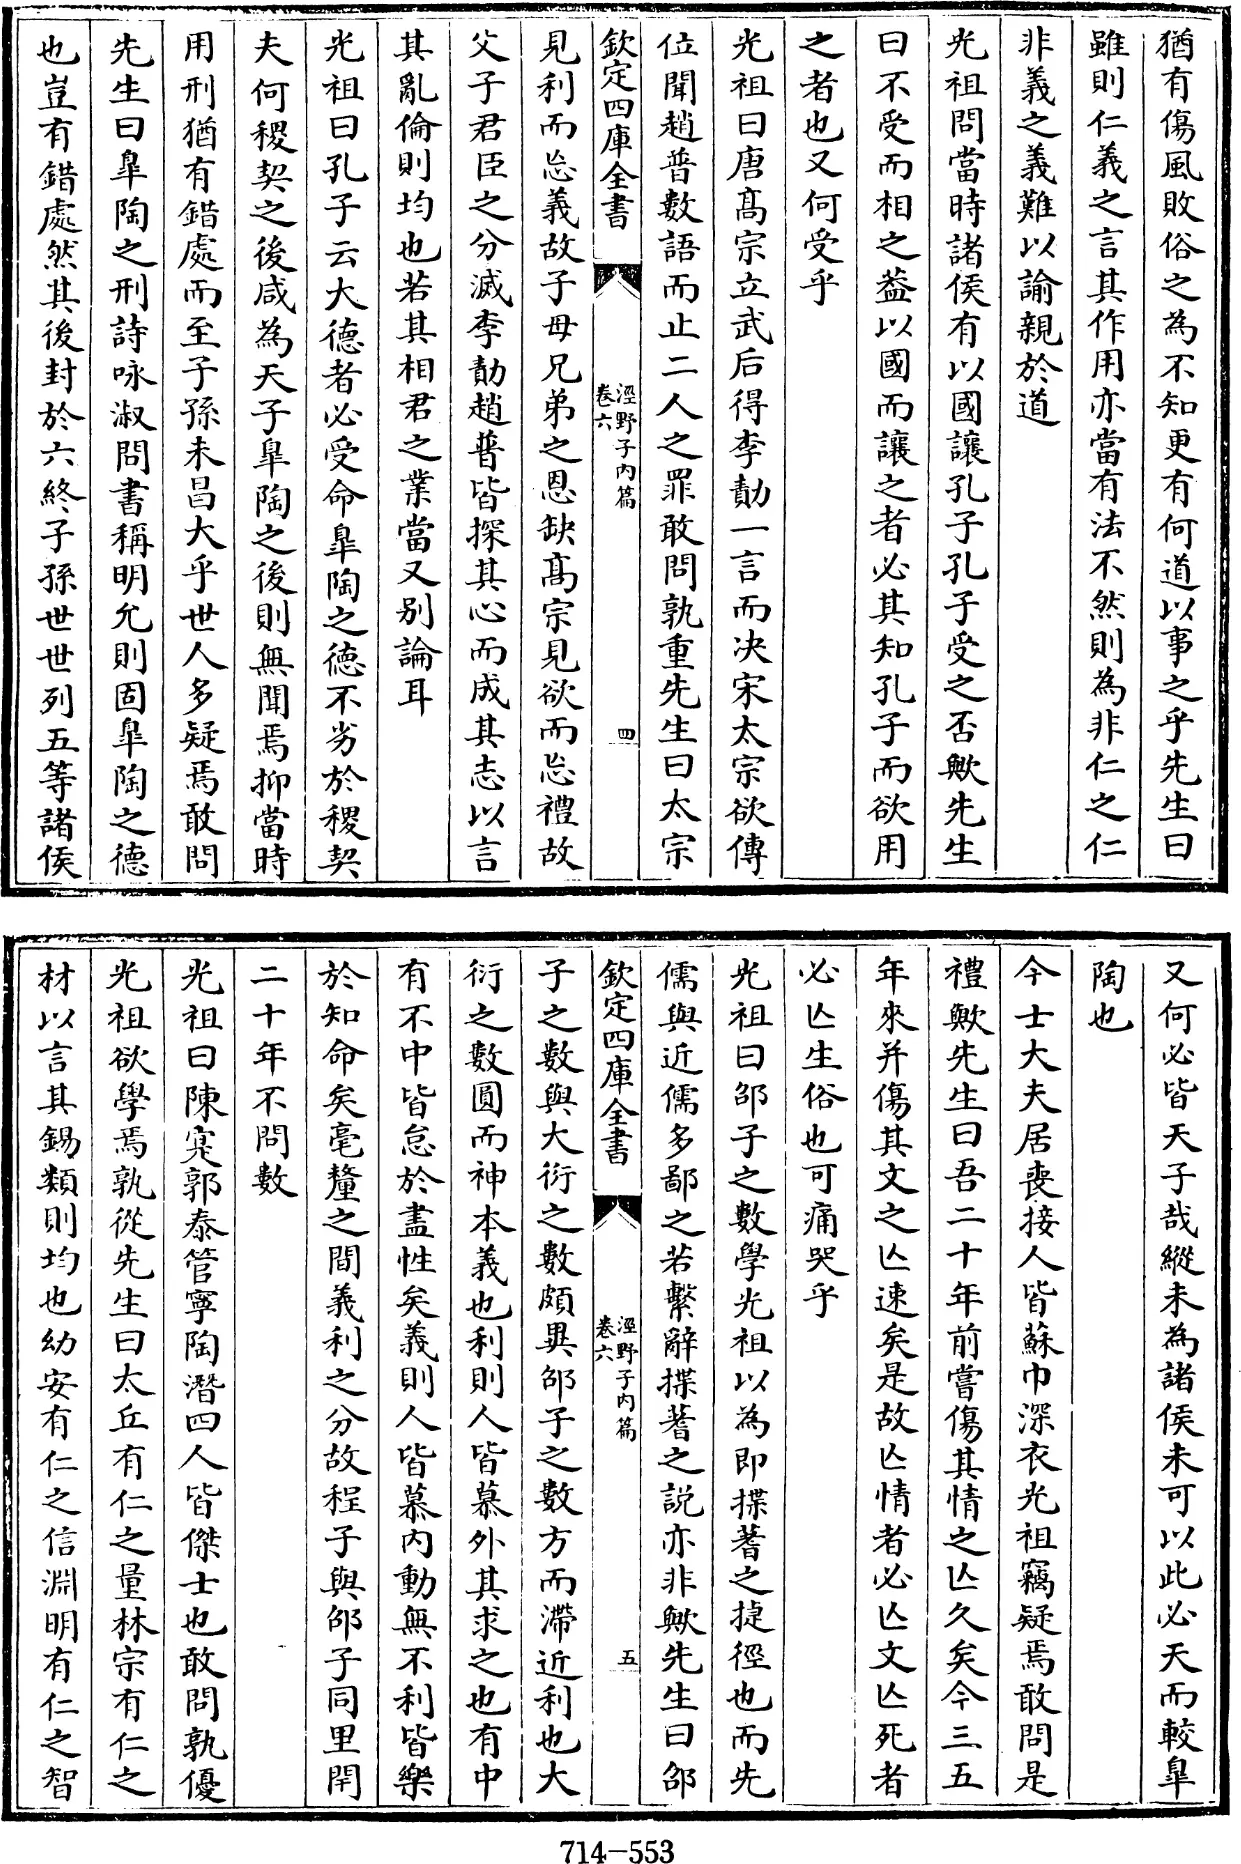 猶有傷風敗俗之為不知更有何道以事之乎先生曰
雖則仁義之言其作用亦當有法不然則為非仁之仁
非義之義難以諭親於道
光祖問當時諸侯有以國讓孔子孔子受之否歟先生
曰不受而相之葢以國而讓之者必其知孔子而欲用
之者也又何受乎
光祖曰唐髙宗立武后得李勣一言而决宋太宗欲傳
位聞趙普數語而止二人之罪敢問孰重先生曰太宗
欽定四庫全書
涇野子内篇
卷六
四
見利而忘義故子母兄弟之恩缺髙宗見欲而忘禮故
父子君臣之分滅李勣趙普皆探其心而成其志以言
其亂倫則均也若其相君之業當又别論耳
光祖曰孔子云大德者必受命臯陶之德不劣於稷契
夫何稷契之後咸為天子臯陶之後則無聞焉抑當時
用刑猶有錯處而至子孫未昌大乎世人多疑焉敢問
先生曰臯陶之刑詩咏淑問書稱明允則固臯陶之德
也豈有錯處然其後封於六終子孫世世列五等諸侯
又何必皆天子哉縱未為諸侯未可以此必天而較臯
陶也
今士大夫居喪接人皆蘇巾深衣光祖竊疑焉敢問是
禮歟先生曰吾二十年前嘗傷其情之亾久矣今三五
年來并傷其文之亾速矣是故亾情者必亾文亾死者
必亾生俗也可痛哭乎
光祖曰邵子之數學光祖以為即揲蓍之捷徑也而先
儒與近儒多鄙之若繫辭揲蓍之説亦非歟先生曰邵
欽定四庫全書
涇野子内篇
卷六
五
子之數與大衍之數頗異邵子之數方而滯近利也大
衍之數圓而神本義也利則人皆慕外其求之也有中
有不中皆怠於盡性矣義則人皆慕内動無不利皆樂
於知命矣毫釐之間義利之分故程子與邵子同里閈
二十年不問數
光祖曰陳寔郭泰管寧陶潛四人皆傑士也敢問孰優
光祖欲學焉孰從先生曰太丘有仁之量林宗有仁之
材以言其錫類則均也幼安有仁之信淵明有仁之智
714-553